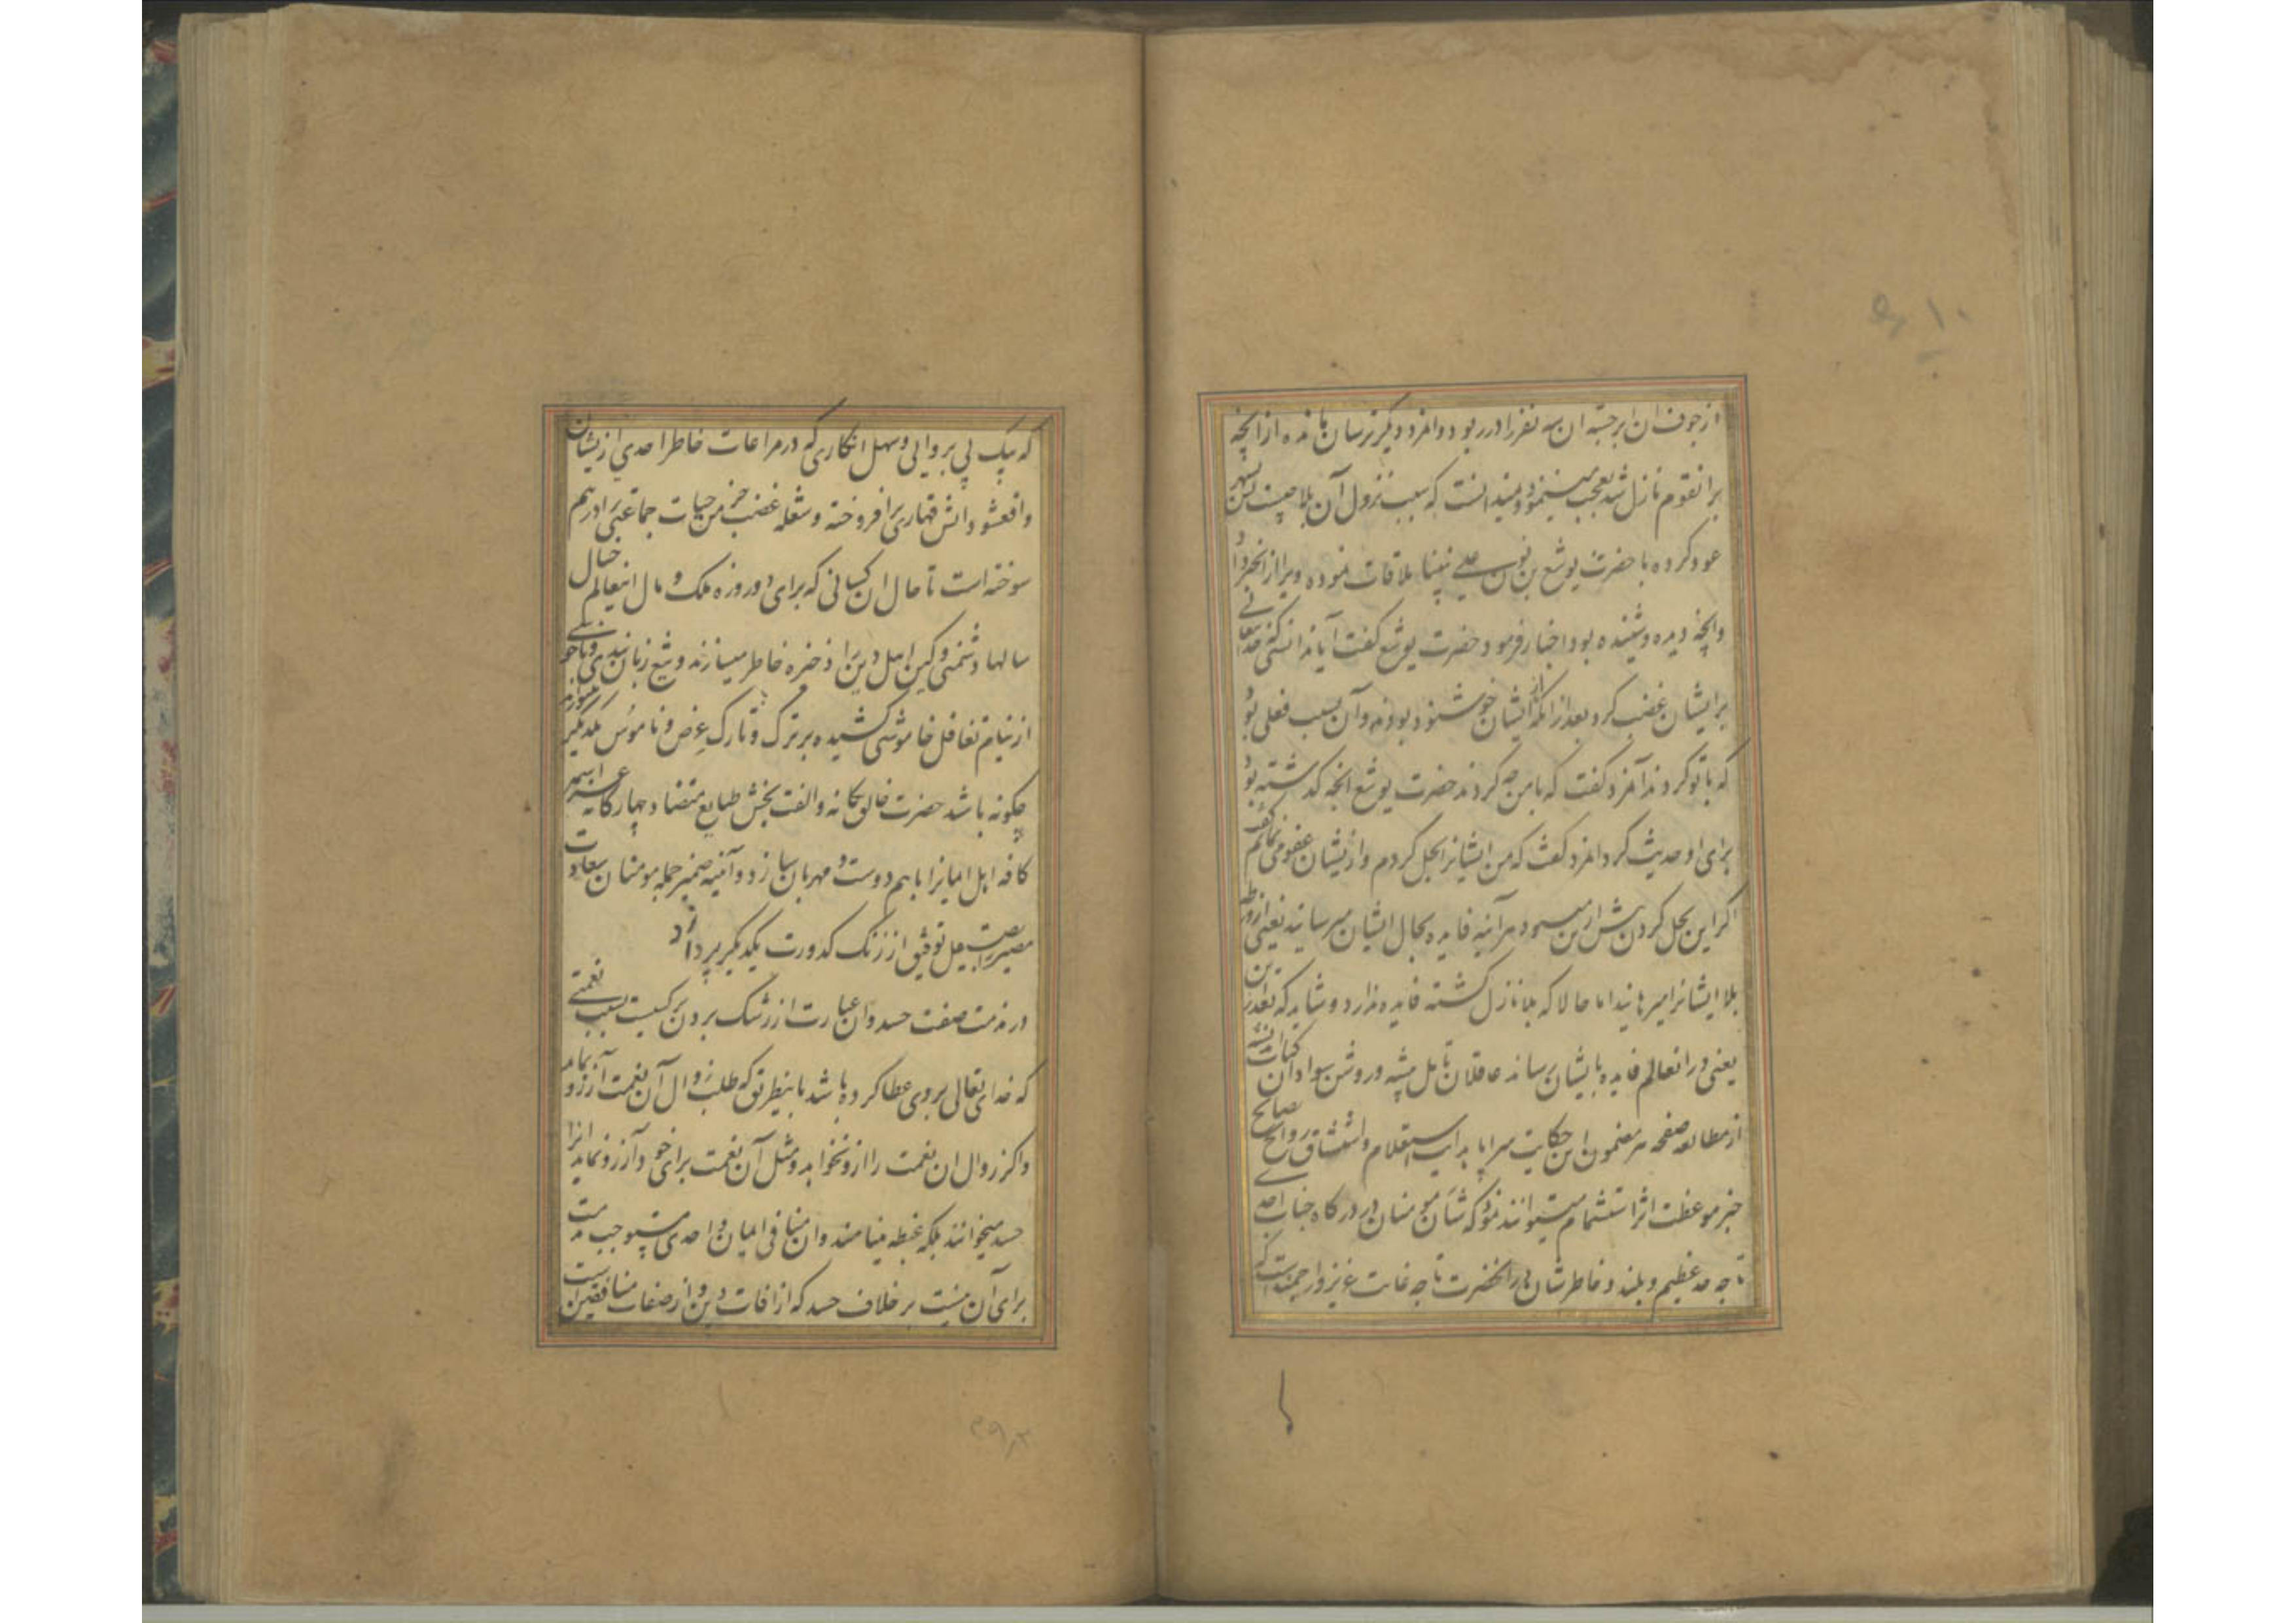 از جوف ان ابر جسته ان سه نفر را در ربود و انمرد دیگر ترسان مانده از انچه
بر انقوم نازل شد تعجب مینمود و نمیدانست که سبب نزول آن بلا چیست پس بشهر
عود کرده با حضرت یوشع بن نون علی نبینا ملاقات نموده ویرا از انخبر داد
و انچه دیده و شنیده بود اخبار فرمود حضرت یوشع گفت آیا ندانستی که خدایتعالی
بر ایشان غضب کرد بعد از آنکه از ایشان خوشنود بود و آن بسبب فعلی بود
که با تو کردند آنمرد گفت که با من چه کردند حضرت یوشع انچه گذشته بود
برای او حدیث کرد انمرد گفت که من ایشانرا بحل کردم و از ایشان عفو می نمایم گفت
اگر این بحل کردن پیش ازین میبود هر آینه فایده بحال ایشان میرسانید یعنی از ورطه
بلا ایشانرا میرهانید اما حالا که بلا نازل گشته فایده ندارد و شاید که بعد ازین
یعنی در انعالم فایده بایشان رساند عاقلان تامل پیشه و روشن سوادان کتاب اندیشه
از مطالعه صفحه مضمون این حکایت سراپا هدایت استعلام و استنشاق روایح نصایح
خبر موعظت اثر استشمام میتوانند نمود که شان مومنان در درگاه جناب احدی
تا چه حد عظیم و بلند و خاطر شان در انحضرت تا چه غایت عزیز و ارجمند است که
که بیک بی پروایی و سهل انگاری که در مراعات خاطر احدی از ایشان
واقعشود اتش قهاری بر افروخته و شعله غضب خرمن حیات جماعتی را در هم
سوخته است تا حال ان کسانی که برای دو روزه ملک و مال اینعالم خیال
سالها دشمنی و کین اهل دین را ذخیره خاطر میسازند و تیغ زبان بدی و ناخوشی
از نیام تغافل خاموشی کشیده بر ترک و تارک عرض و ناموس یکدیگر میتوزند
چگونه باشد حضرت خالق یگانه و الفت بخش طبایع متضاد چهارگانه عز اسمه
کافه اهل ایمانرا باهم دوست و مهربان سازد و آئینه ضمیر جمله مومنان سعادت
مصیر را بصیقل توفیق از زنک کدورت یکدیگر بپردازد
در مذمت صفت حسد و ان عبارت از رشک بردن بر کسیست بسبب نعمتی
که خدای تعالی بروی عطا کرده باشد باینطریق که طلب زوال آن نعمت آرزو نماید
و اگر زوال ان نعمت را ازو نخواهد و مثل آن نعمت برای خود آرزو نماید انرا
حسد نمیخوانند بلکه غبطه مینامند و ان منافی ایمان و احدی مستوجب مذمت
برای آن نیست بر خلاف حسد که از افات دین و از صفات منافقین است